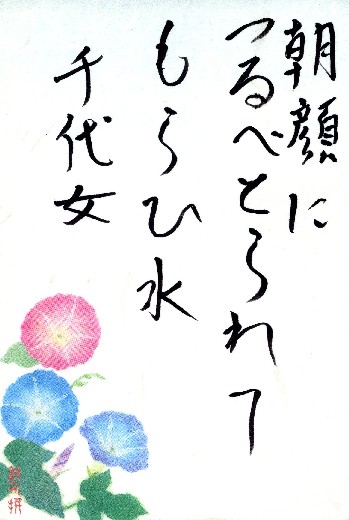 朝顔に
つるべとられて
もらひ水
千代女